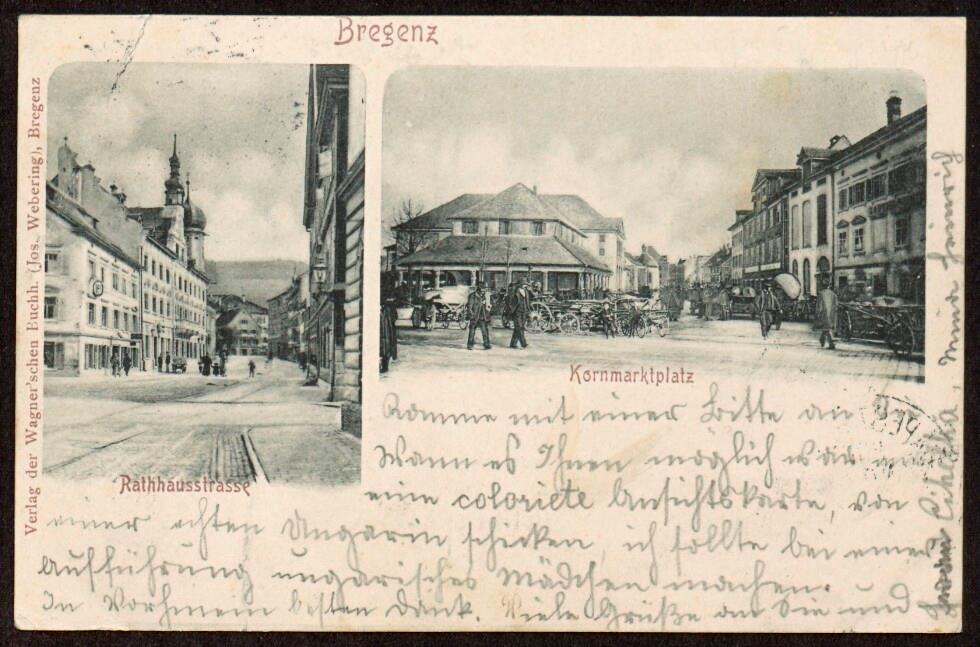 Bregenz
Verlag der Wagner'schen Buchh. (Jos. Webering), Bregenz
Rathhausstrasse
Kornmarktplatz
Komme mit einer Bitte an
Wann es Ihnen möglich wär mir
eine coloriete Ansichtskarte, von
einer echten Ungarin schicken, ich sollte bei einer
Aufführung ungarisches Mädchen machen.
In Vorhinein besten Dank. Viele Grüße an Sie und
Heinrich